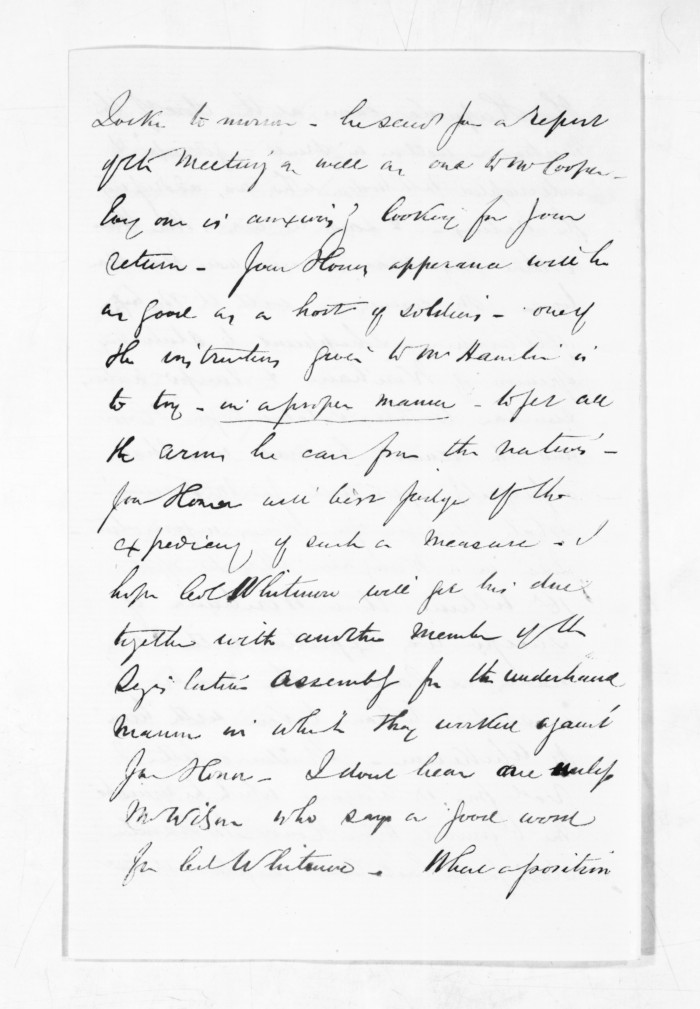 to morrow - he send for a report
of the Meeting as well as one to Mr Cooper -
Evy one is anxiously looking for Your
return - Your Honors apperance will be
as good as a host of soldiers - one of
the instructions given to Mr Hamlin is
to try - in a proper manner - to get all
the arms he can from the natives -
Your Honor will best judge of the
expediency of such a measure - I
hope Col Whitmore will get his due
together with another Member of the
Legislative Assembly for the underhand
manner in which they worked against
Your Honor - I dont hear one unless
Mr Wilson who says a good word
for Col Whitmore - What a position